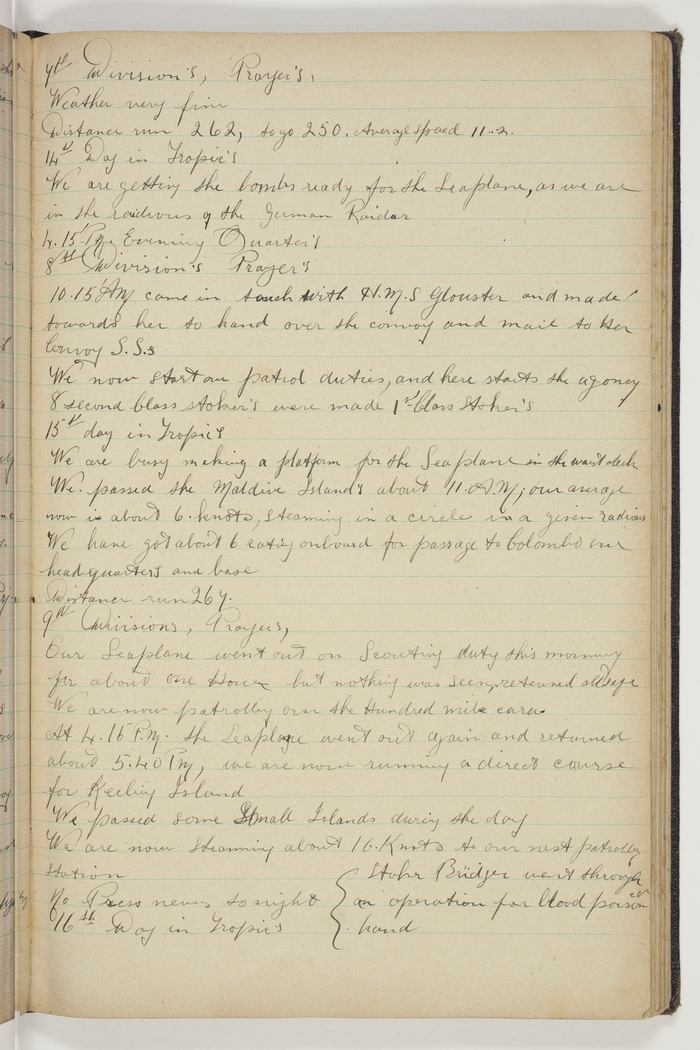 7th Division's, Prayer's,
Weather very fine
Distance run 262, to go 250. Average speed 11.2.
14th Day in Tropic's
We are getting the bombs ready for the Seaplane, as we are
in the raidious of the German Raider
4.15 P.M. Evening Quarter's
8th Division's Prayer's
10.15 AM came in touch with H.M.S Glouster and made
towards her to hand over the convoy and mail to Her
Convoy S.S.s
We now start our patrol duties, and here starts the agony
8 second Class stoker's were made 1st Class Stoker's
15th day in Tropic's
We are busy making a platform for the Seaplane in the waist deck
We passed the Maldive Island's about 11. A.M, our average
now is about 6. knots, steaming in a circle in a given radious
We have got about 6 rating onboard for passage to Colombo our
head quarter's and base
Distance run 267.
9th Divisions, Prayers,
Our Seaplane went out on Scouting duty this morning
for about one Hour but nothing was seen, returned all safe
We are now patrolly over the Hundred mile
At 4.15 P.M. the Seaplane went out again and returned
about 5.40 PM, we are now running a direct course
for Keeling Island
We passed some Small Islands during the day
We are now Steaming about 16. Knots to our next patrolly
Station
No Press news to night
16th Day in Tropic's
Stoker Bridger went through
an operation for blood poison
hand